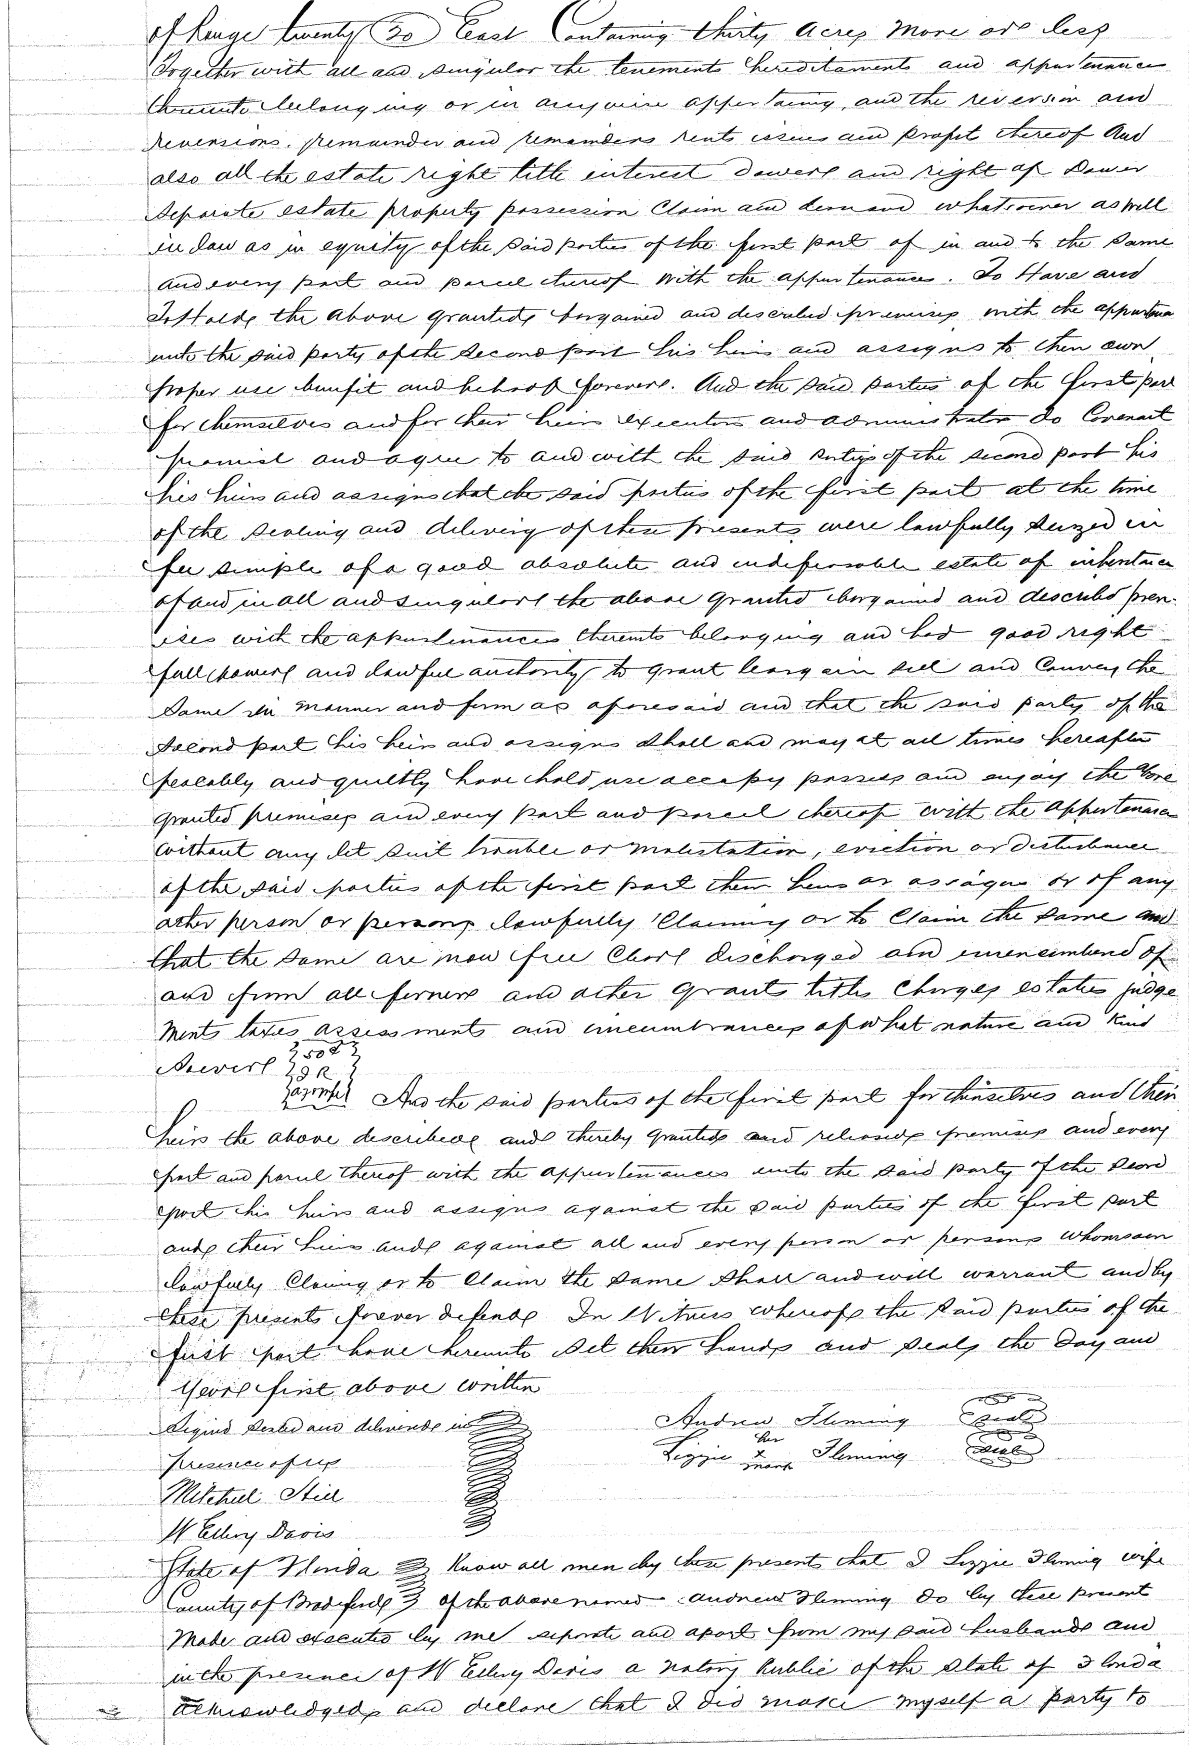 of Range twenty (20) East Containing thirty acres more or less
Together with all and singular the tenements hereditaments and appurtenances
thereunto belonging or in anywise appertaining, and the reversion and
reversions, remainder and remainders rents issues and profit thereof And
also all the estate right title interest dower and right of Dower
separate estate property possession Claim and demand whatsoever as well
in law as in equity of the said parties of the first part of in and to the same
and every part and parcel thereof with the appurtenances. To Have and
To Hold the above granted, bargained and described premises with the appurtena
unto the said party of the second part his heirs and assigns to their own
proper use benifit and behoof forever. And the said parties of the first part
for themselves and for their heirs executors and administrators do Covenant
promise and agree to and with the said parties of the second part his
his heirs and assigns that the said parties of the first part at the time
of the sealing and delivery of these presents were lawfully seized in
fee simple of a good absolute and indefeasable estate of inheritance
of and in all and singular the above granted bargained and described prem-
ises with the appurtenances thereunto belonging and had good right
full power and lawful authority to grant bargain sell and Convey the
same in manner and form as aforesaid and that the said party of the
second part his heirs and assigns shall and may at all times hereafter
peacably and quietly have hold use occupy possess and enjoy the above
granted premises and every part and parcel thereof with the appurtenances
without any let suit trouble or molestation, eviction or disturbance
of the said parties of the first part their heirs or assigns or of any
other person or persons lawfully Claiming or to Claim the same and
that the same are now free Clear discharged and unencumbered of
and from all former and other grants titles Charges estates judge
ments taxes assessments and incumbrances of what nature and kind
soever
And the said parties of the first part for themselves and their
heirs the above described and thereby granted and released premises and every
part and parcel thereof with the appurtenances unto the said party of the second
part his heirs and assigns against the said parties of the first part
and their heirs and against all and every person or persons whomsoever
lawfully Claiming or to Claim the same shall and will warrant and by
these presents forever defend In Witness whereof the said parties of the
first part have hereunto set their hands and seals the day and
Year first above written
Signed Sealed and delivered in Andrew Fleming Seal
presence of us Lizzie her x mark Fleming Seal
Mitchell Still
W Ellery Davis
State of Florida Know all men by these presents that I Lizzie Fleming wife
County of Bradford of the above named Andrew Fleming do by these present
Made and executed by me separate and apart from my said husband and
in the presence of W Ellery Davis a notary Public of the State of Florida
acknowledged and declare that I did make myself a party to